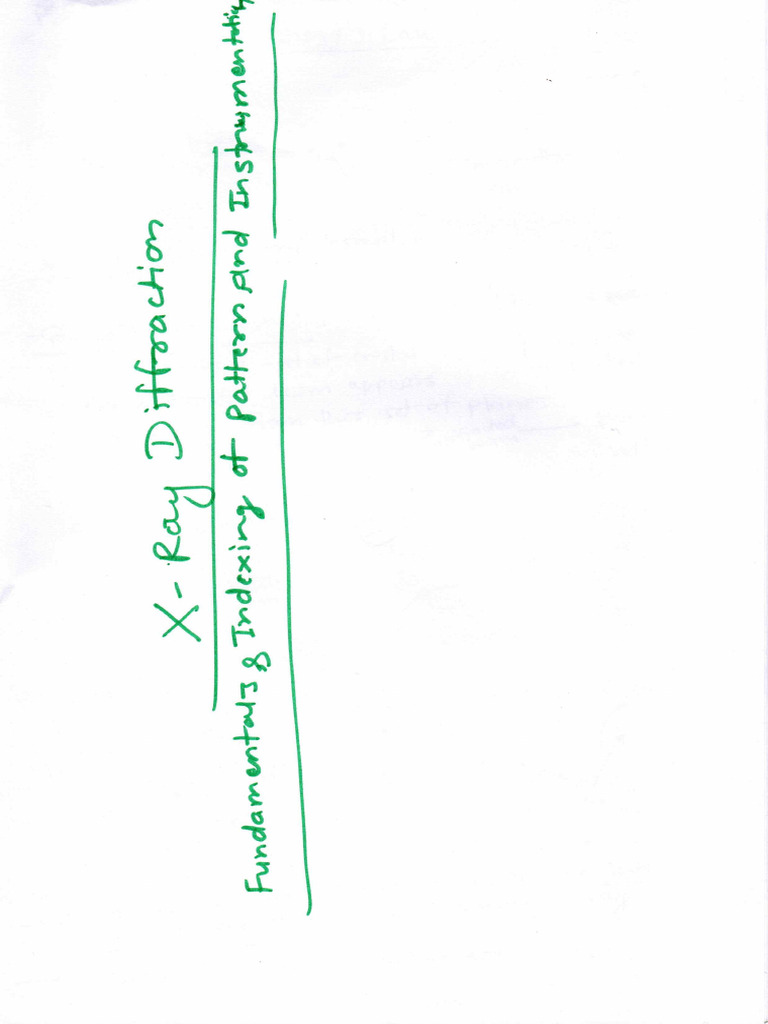 X-Ray Diffraction
Fundamentals & Indexing of Pattern and Instrumentation